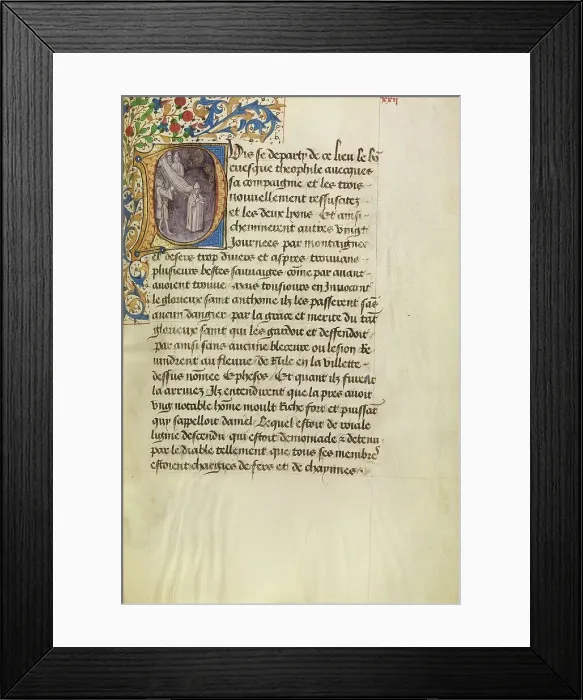 xxii
Puis se departy de ce lieu le bõ
euesque theophile auecques
sa compaignie et les trois
nouuellement ressuscitez
et les deux lyons Et ainsi
cheminerent autres vingt
Journees par montaignes
et desers trop diuers et aspres trouuans
plusieurs bestes sauuaiges cõme par auant
auoient trouue Mais tousiours en Inuocant
le glorieux saint anthoine ilz les passerent sãs
aucun dangier par la grace et merite du tãt
glorieux saint qui les gardoit et deffendoit
par ainsi sans aucune bleceure ou lesion Ilz
vindrent au fleuue de Nile en la villette
dessus nõmee Ephesos Et quant ilz furent
la arriuez Ilz entendirent que la pres auoit
vng notable hõme moult Riche fort et puissãt
quy sappelloit daniel Lequel estoit de roiale
ligne descendu qui estoit demoniacle & detenu
par le diable tellement que tous ses membres
estoient chargies de fers et de chaynnes